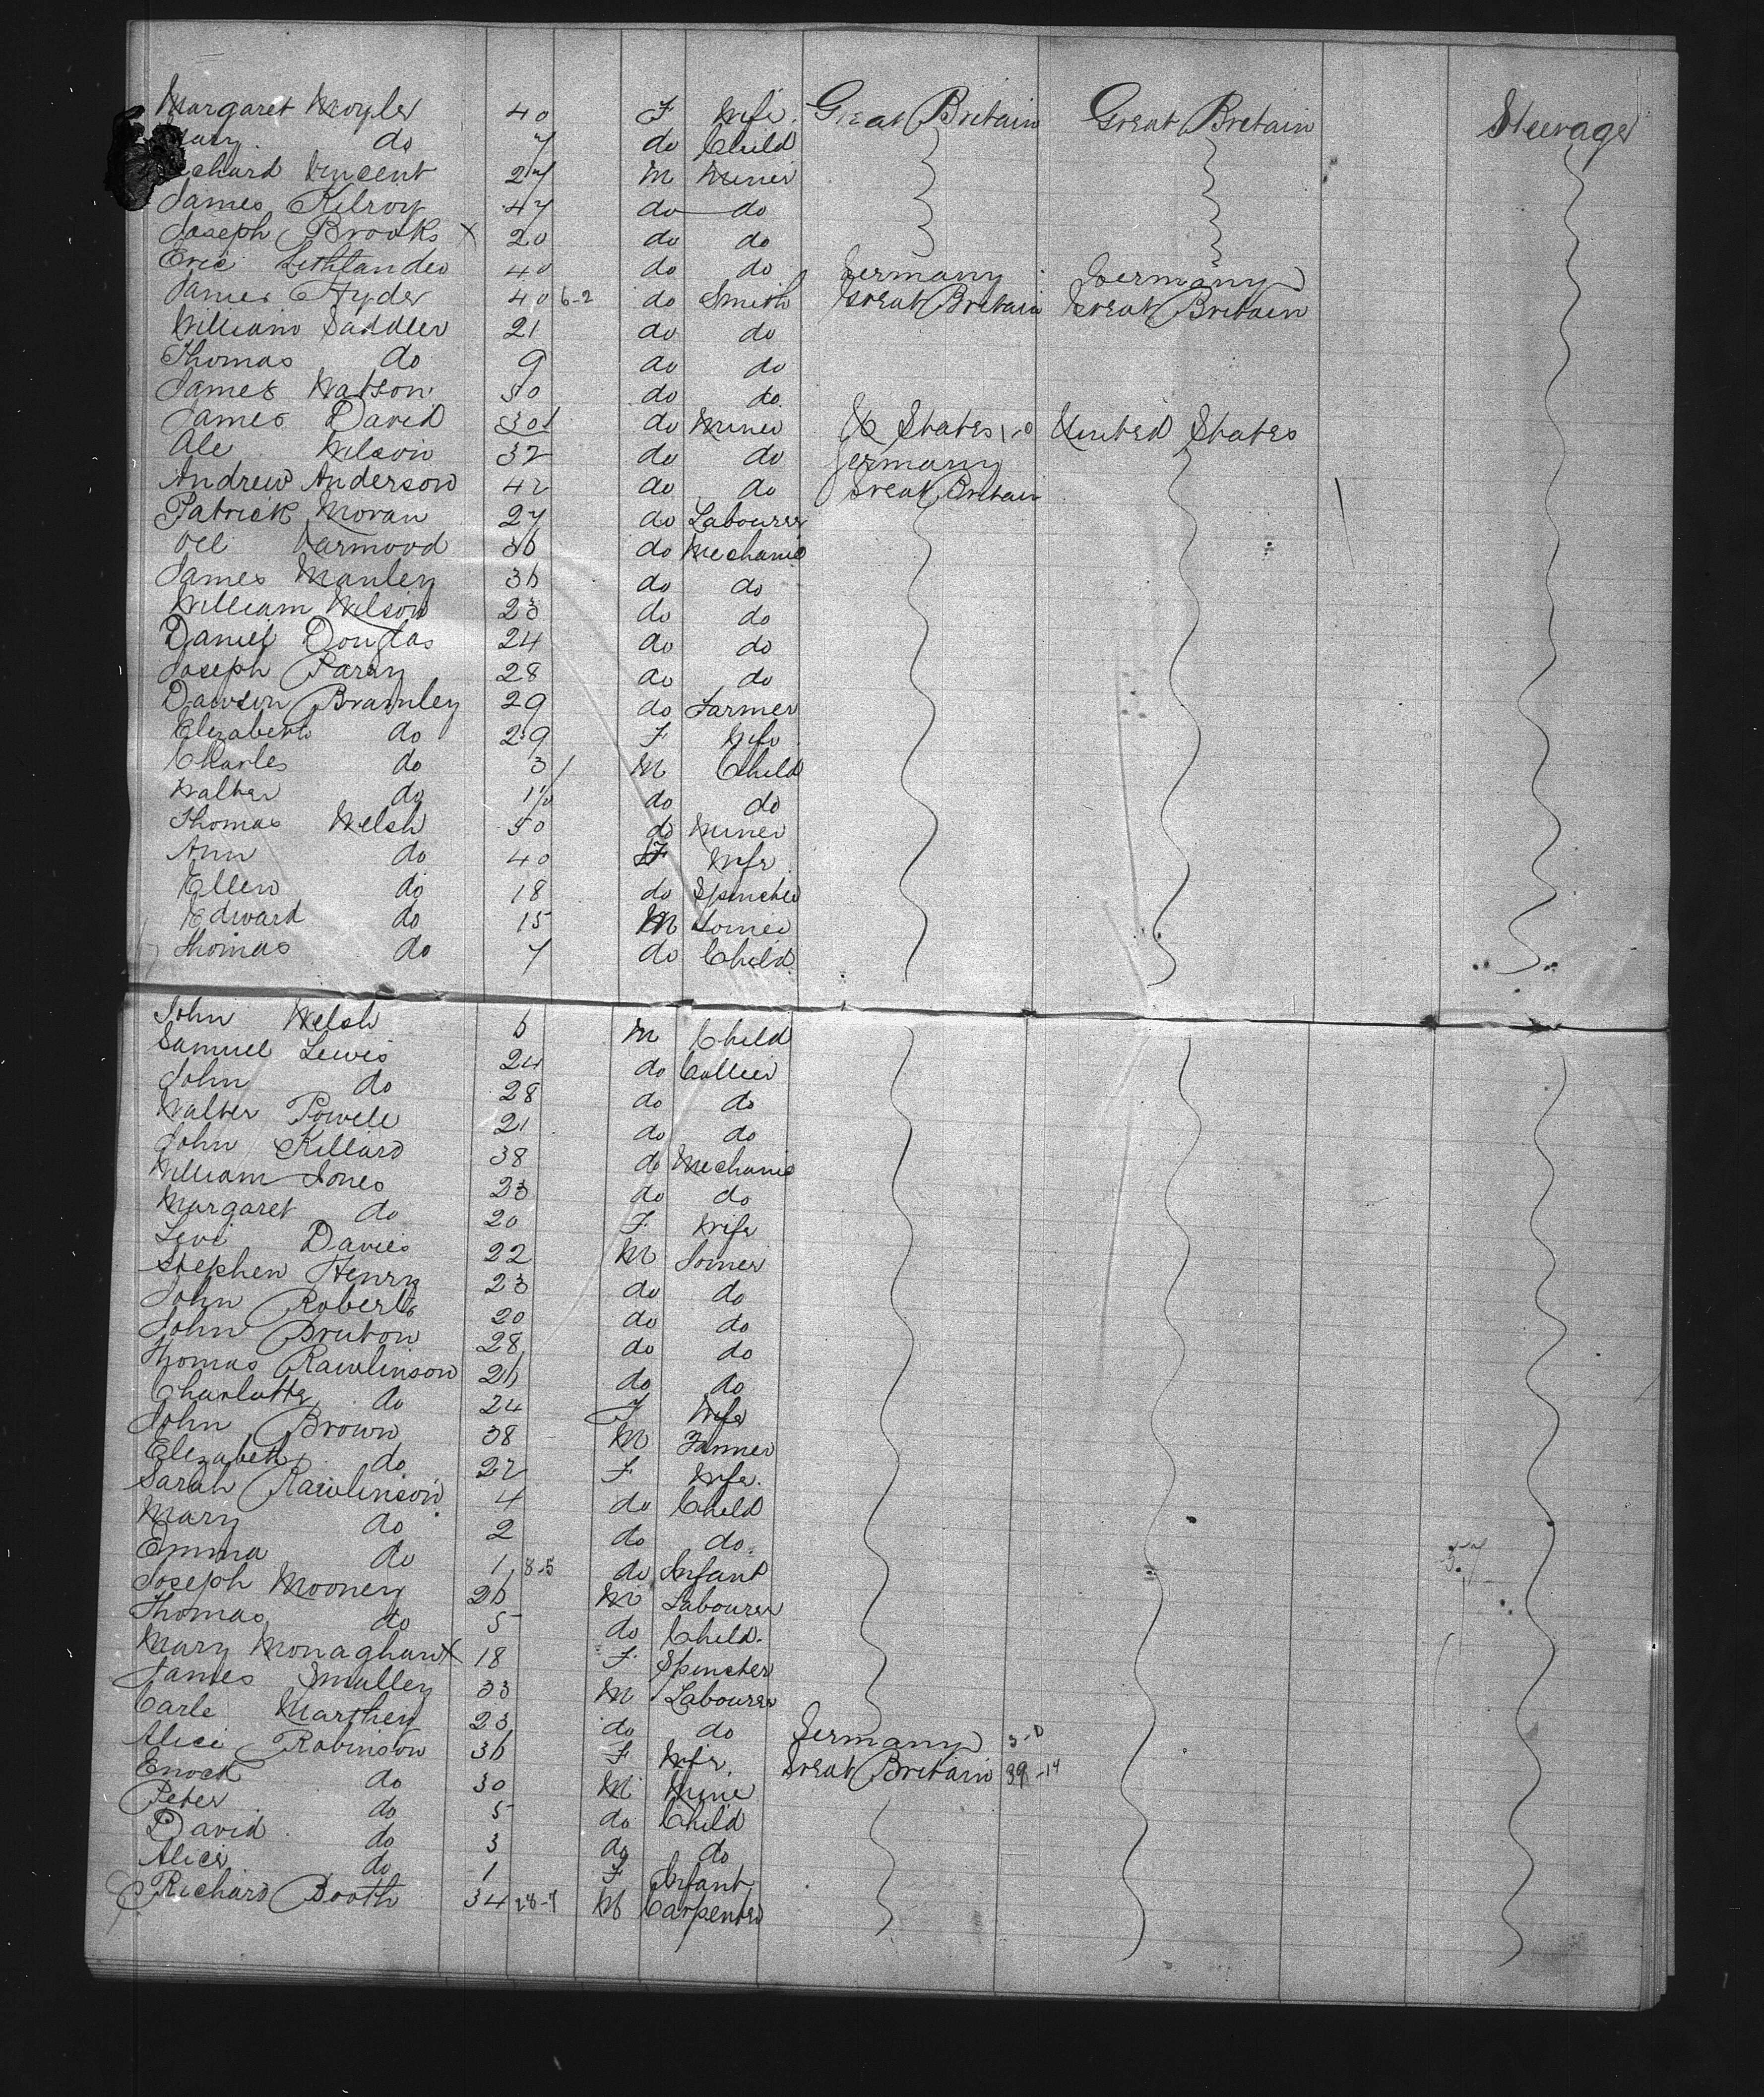 Margaret Moyler 40 F Wife. Great Britain Great Britain Steerage
Mary do 7 do Child
Richard Vincent 27 M Miner
James Kilroy 47 do do
Joseph Brooks X 20 do do
Eric 40 do do Germany Germany
James Hyder 40 6-2 do Smith Great Britain Great Britain
William Saddler 21 do do
Thomas do 9 do do
James Watson 50 do do
James David 30 do Miner U States 1-0 United States
Ole Nelson 32 do do Germany
Andrew Anderson 42 do do Great Britain
Patrick Moran 27 do Labourer
36 do Mechanic
James Manley 36 do do
William Wilson 23 do do
Daniel Douglas 24 do do
Joseph Parry 28 do do
Dawson Bramley 29 do Farmer
Elizabeth do 29 F Wife
Charles do 3 M Child
Walter do do do
Thomas Welsh 50 do Miner
Ann do 40 F Wife
Ellen do 18 do Spinster
Edward do 15 M
Thomas do 7 do Child
John Welsh 6 M Child
Samuel Lewis 24 do Collier
John do 28 do do
Walter Powell 21 do do
John Killard 38 do Mechanic
William Jones 23 do do
Margaret do 20 F Wife
Levi Davies 22 M
Stephen Henry 23 do do
John Roberts 20 do do
John Bruton 28 do do
Thomas Rawlinson 26 do do
Charlotte do 24 F Wife
John Brown 38 M
Elizabeth do 22 F Wife.
Sarah Rawlinson 4 do Child
Mary do 2 do do.
Emma do 1 8-5 do Infant
Joseph Mooney 26 M Labourer
Thomas do 5 do Child.
Mary Monaghan X 18 F Spinster
James Smulley 33 M Labourer
Carle 23 do do Germany 3-0
Alice Robinson 36 F Wife Great Britain 39-14
Enock do 30 M Mine
Peter do 5 do Child
David do 3 do do
Alice do 1 F Infant
Richard Booth 34 28-7 M Carpenter